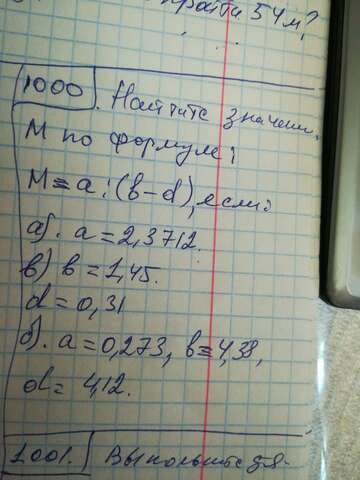 пройти 54 м?
1000. Найтите значени.
М по формуле:
М = а : (в - d), если:
а). а = 2,3712.
в) в = 1,45.
d = 0,31
б). а = 0,273, в = 4,38,
d = 4,12.
1001. Выполните дя-